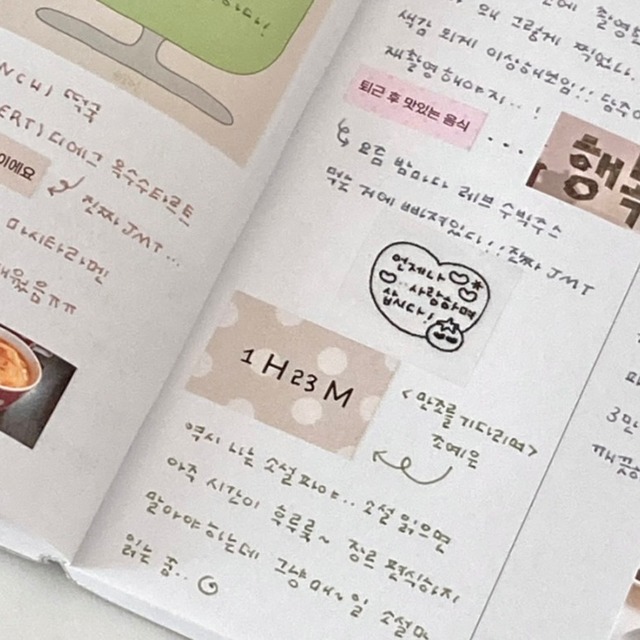 NCH) 떡국
ERT) 디에그 옥수수타르트
이에요
진짜 JMT...
마시타라멘
왜 그렇게 찍었나
색감 되게 이상해보임!!
재촬영해야지..!
퇴근 후 맛있는 음식
요즘 밤마다 레브 수박주스
먹는 거에 빠져있다!! 진짜 JMT
행복
언제나
사랑하며
삽시다!
1H23M
<만조를 기다리며>
조예은
역시 나는 소설파야.. 소설 읽으면
아주 시간이 후루룩~ 장르 편식하지
말아야 하는데 그냥 매일 소설만
읽는 중..
3만